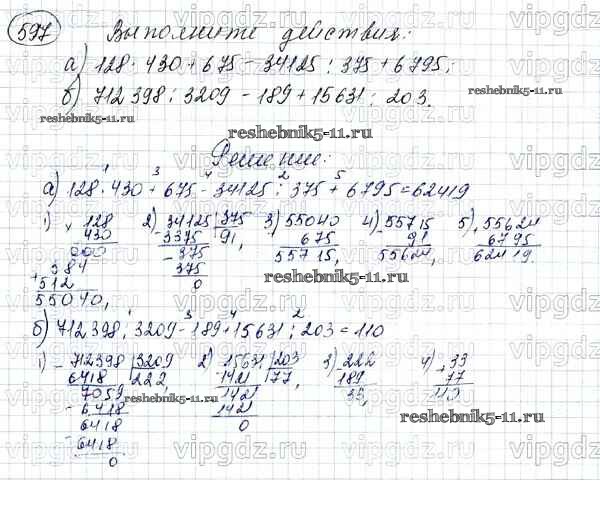 597 Выполните действия:
а) 128 · 430 + 675 - 34125 : 375 + 6795;
б) 712398 : 3209 - 189 + 15631 : 203.
reshebnik5-11.ru
reshebnik5-11.ru
Решение:
1 3 4 2 5
а) 128 · 430 + 675 - 34125 : 375 + 6795 = 62419
1) × 128 2) 34125 | 375 3) 55040 4) 55715 5) + 55624
430 - 3375 91, 675 91 6795
000 - 375 55715, 55624, 62419.
384 375
+ 512 0
55040,
reshebnik5-11.ru
1 3 4 2
б) 712398 : 3209 - 189 + 15631 : 203 = 110
1) - 712398 | 3209 2) 15631 | 203 3) 222 4) + 33
6418 222, 1421 77, 189 77
7059 1421 33, 110
- 6418 1421
6418 0
- 6418
0
reshebnik5-11.ru
vipgdz.ru